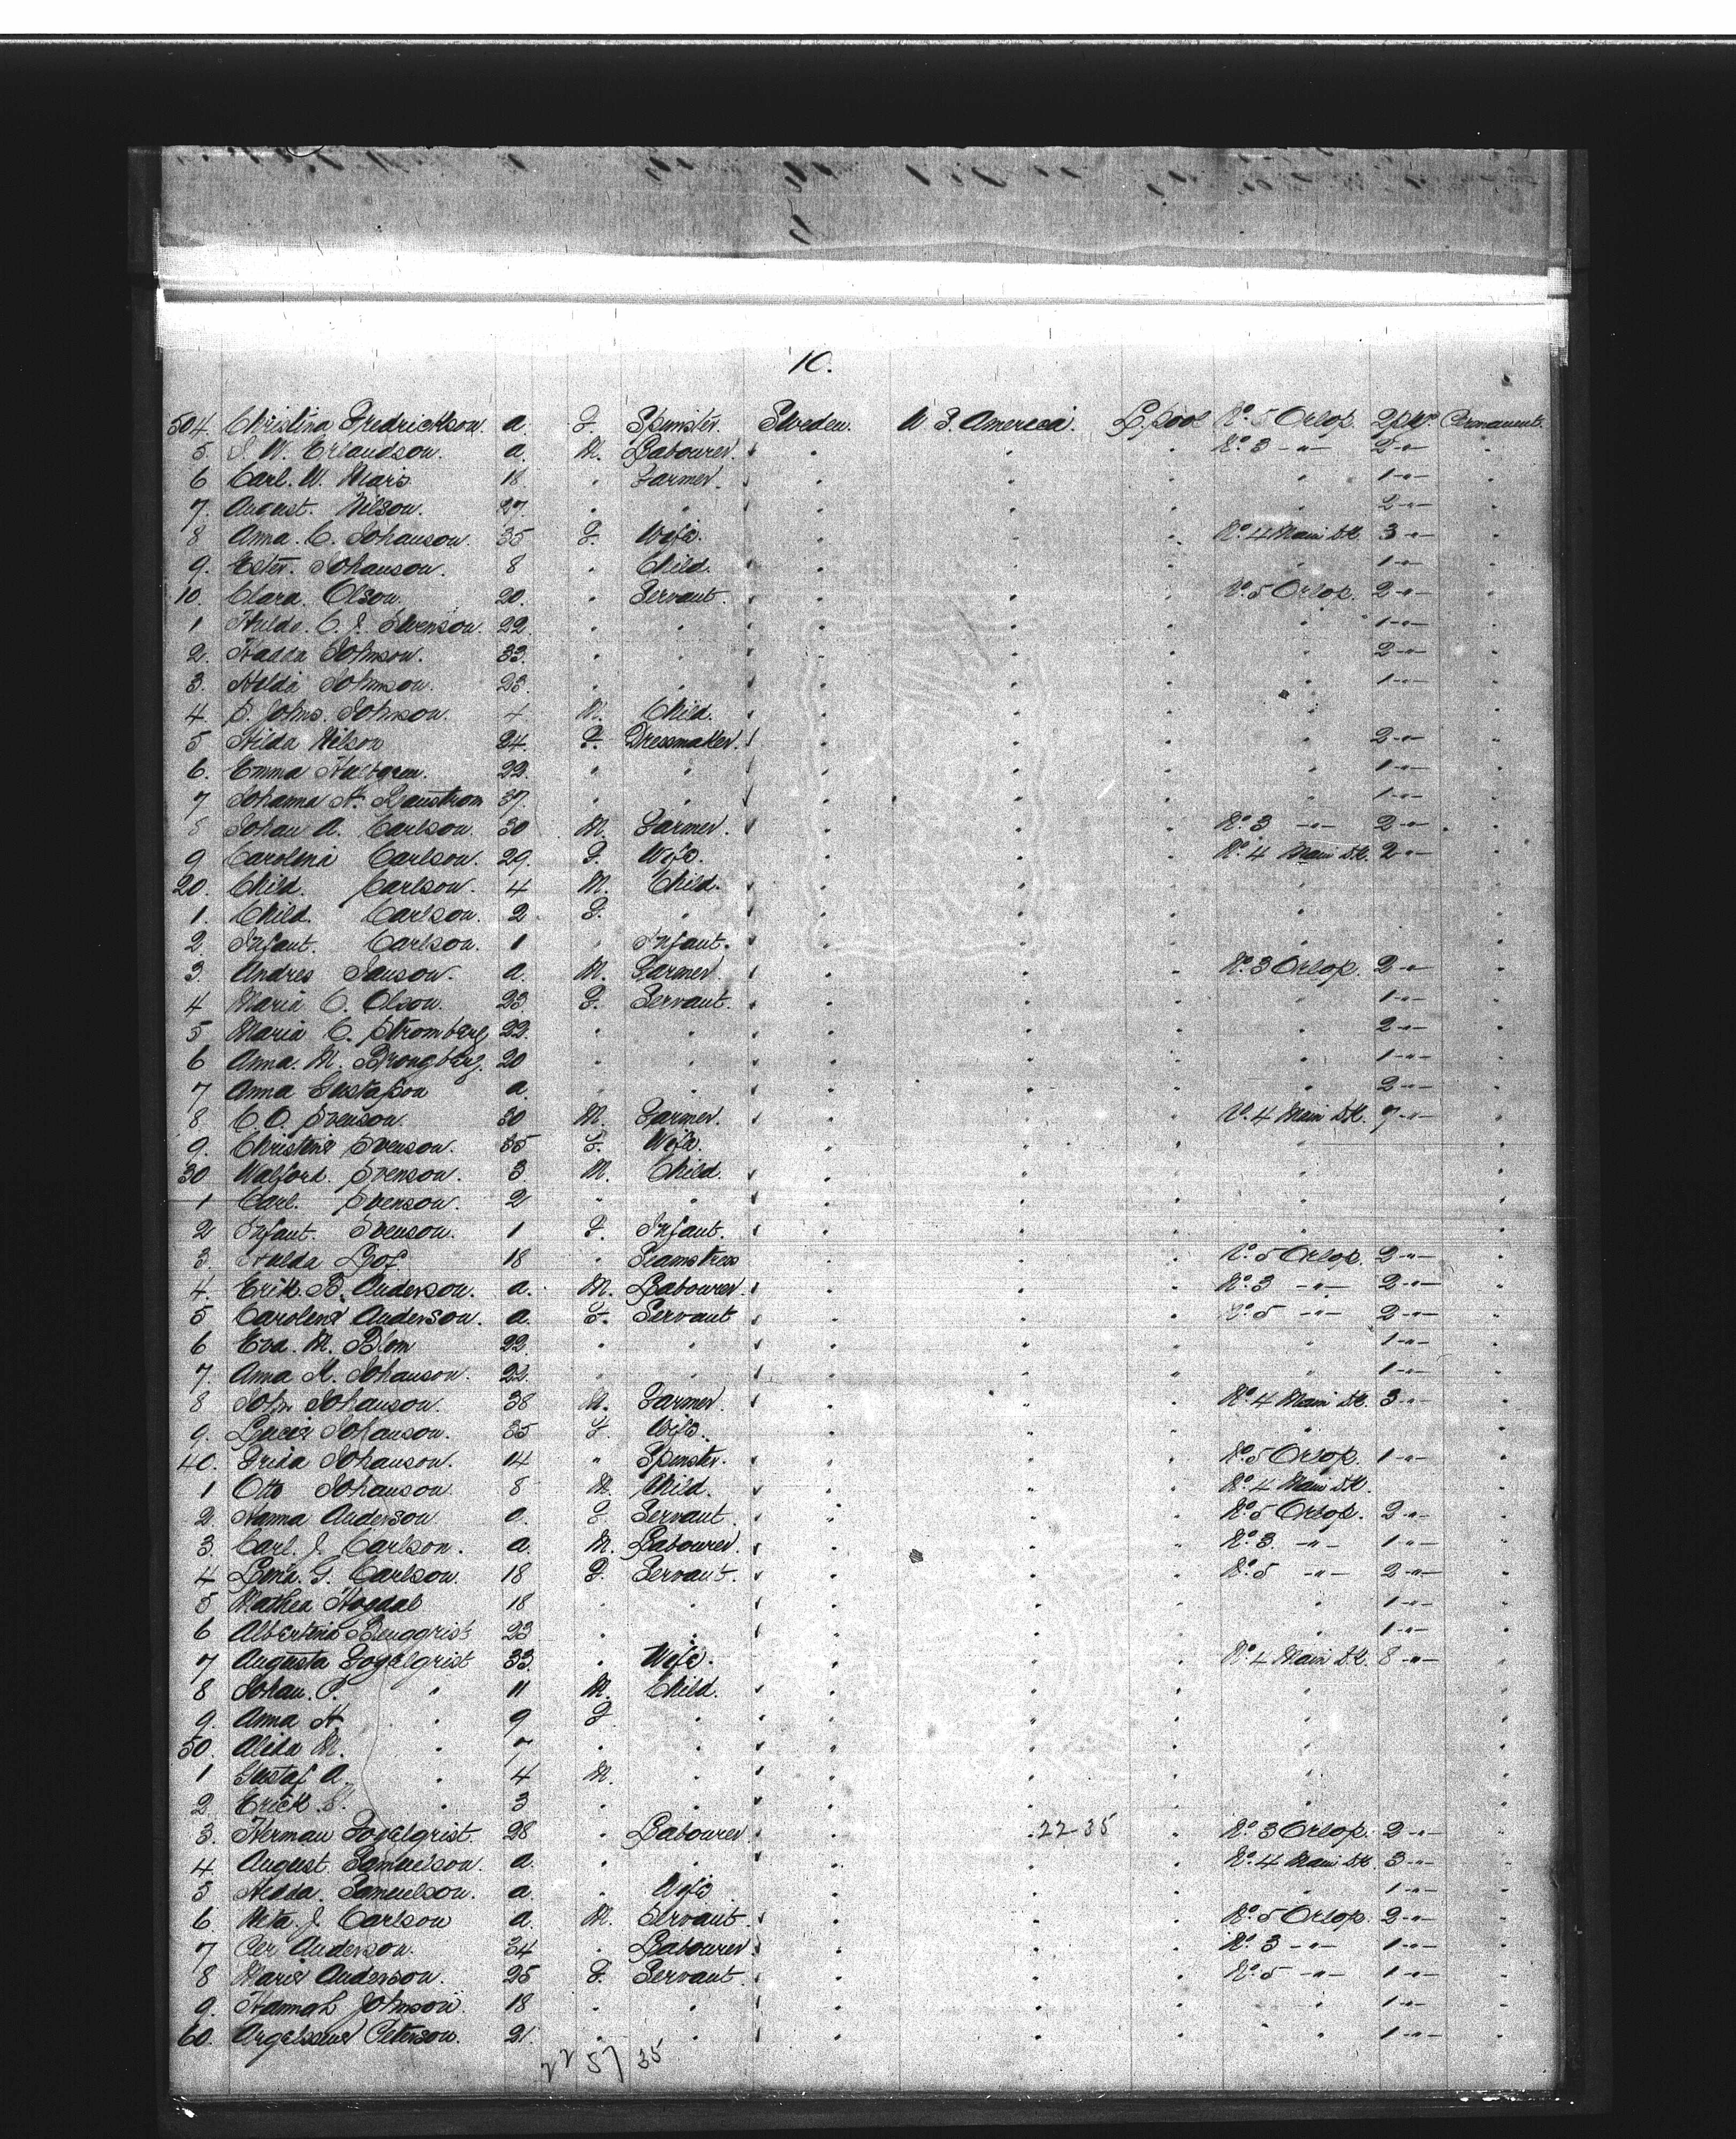 10.
504. Christina Fredrickson. a. F. Spinster. Sweden. U S. America. L.pool No. 5 Orlop. 2 pkgs. Permanent.
5. J. W. Erlandson. a. M. Labourer. " " " No. 3 -"- 2 -"- "
6 Carl. W. 18. " Farmer. " " " " 1 -"- "
7. August. Nilson. 27. " " " " " " 2 -"- "
8 Anna. C. Johanson. 35 F. Wife. " " " No. 4 Main Dk. 3 -"- "
9. Ester. Johanson. 8 " Child. " " " " 1 -"- "
10. Clara. Olson. 20. " Servant. " " " No. 5 Orlop. 2 -"- "
1 Hulda. C. J. Swenson. 22. " " " " " " 1 -"- "
2. Johnson. 33. " " " " " " 2 -"- "
3. Johnson. 23. " " " " " " 1 -"- "
4. Johnson. 4 M. Child. " " " " "
5 Hilda Nilson 24. F. Dressmaker. " " " " 2 -"- "
6. Emma 22. " " " " " " 1 -"- "
7 Johanna H. 37. " " " " " " 1 -"- "
8 Johan A. Carlson. 30 M. Farmer. " " " No. 3 -"- 2 -"- "
9 Carolina Carlson. 29. F. Wife. " " " No. 4 Main Dk. 2 -"- "
20. Child. Carlson. 4 M. Child. " " " " "
1. Child. Carlson. 2. F. " " " " " "
2. Infant. Carlson. 1 " Infant. " " " " "
3. Andres Janson. a. M. Farmer. " " " No. 3 Orlop. 2 -"- "
4 Maria C. Olson. 23 F. Servant. " " " " 1 -"- "
5 Maria C. Stromberg 22. " " " " " " 2 -"- "
6 Anna. M. 20 " " " " " " 1 -"- "
7 Anna Gustafson a. " " " " " " 2 -"- "
8 C. O. Svenson. 30 M. Farmer. " " " No. 4 Main Dk. 7 -"- "
9. Christina Svenson. 35 F. Wife. " " " " "
30 Walford. Svenson. 3. M. Child. " " " " "
1 Carl. Svenson. 2 " " " " " " "
2 Infant. Svenson. 1 F. Infant. " " " " "
3. Hulda Lof 18 " Seamstress " " " No. 5 Orlop. 2 -"- "
4. Erik. B. Anderson. a. M. Labourer. " " " No. 3 -"- 2 -"- "
5 Carolina Anderson. a. F. Servant " " " No. 5 -"- 2 -"- "
6 Eva. M. Blom 22 " " " " " " 1 -"- "
7. Anna Johanson. 22. " " " " " " 1 -"- "
8 John Johanson. 38 M. Farmer. " " " No. 4 Main Dk. 3 -"- "
9. Johanson. 35 F. Wife. " " " " "
40. Frida Johanson. 14 " Spinster. " " " No. 5 Orlop. 1 -"- "
1 Otto Johanson. 8 M. Child. " " " No. 4 Main Dk. "
2. Hanna Anderson a. F. Servant. " " " No. 5 Orlop. 2 -"- "
3. Carl. J. Carlson. a. M. Labourer. " " " No. 3. -"- 1 -"- "
4 Lina. G. Carlson. 18 F. Servant. " " " No. 5 -"- 2 -"- "
5 Mathea 18 " " " " " " 1 -"- "
6 Albertina 23 " " " " " " 1 -"- "
7 Augusta Fogelgrist 33. " Wife. " " " No. 4 Main Dk. 8 -"- "
8 Johan. P. " 11 M. Child. " " " " "
9. Anna H. " 9 F. " " " " " "
50. Alida M. " 7 " " " " " " "
1 Gustaf A. " 4 M. " " " " " "
2. Erick. " 3 " " " " " " "
3. Herman Fogelgrist. 28 " Labourer. " " 22-35 " No. 3 Orlop. 2 -"- "
4. August. Samuelson. a. " " " " " No. 4 Main Dk. 3 -"- "
5 Hedda. Samuelson. a. " Wife " " " " 1 -"- "
6 Meta. J. Carlson a. M. Servant. " " " No. 5 Orlop. 2 -"- "
7 Per Anderson. 34 " Labourer. " " " No. 3 -"- 1 -"- "
8 Maria Anderson. 25 F. Servant. " " " No. 5 -"- 1 -"- "
9. Hannah Johnson. 18 " " " " " " 1 -"- "
60. Peterson. 21. " " " " " " 1 -"- "
22 57 35